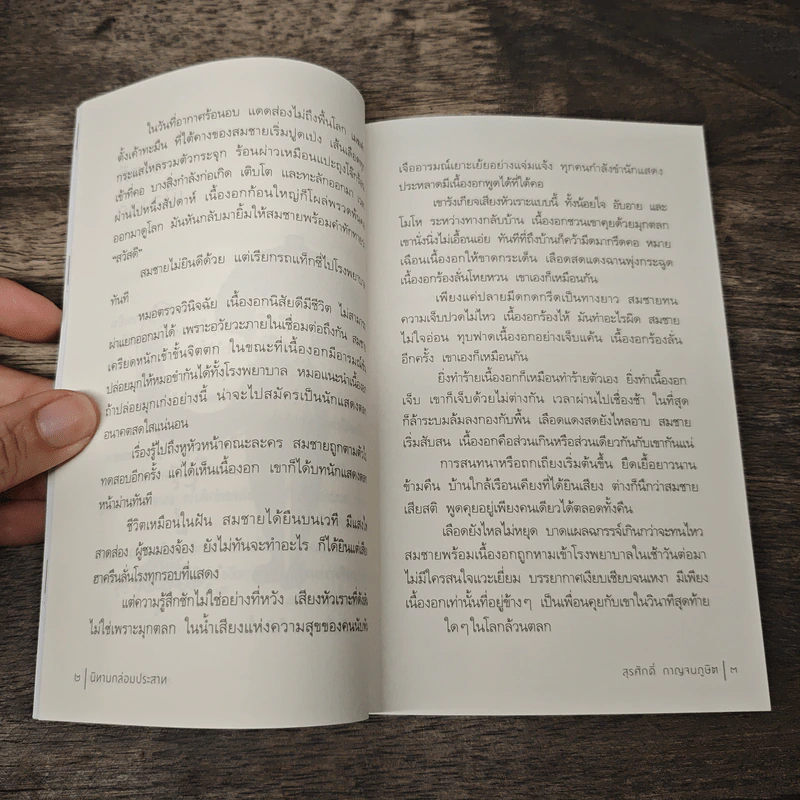 ในวันที่อากาศร้อนอบ แดดส่องไม่ถึงพื้นโลก
ตั้งเค้าทะมึน ที่ใต้คางของสมชายเริ่มปูดเป่ง
กระแสไหลรวมตัวกระจุก ร้อนผ่าวเหมือนแปะถุง
เข้าที่คอ บางสิ่งกำลังก่อเกิด เติบโต และทะลักออกมา
ผ่านไปหนึ่งสัปดาห์ เนื้องอกก้อนใหญ่ก็โผล่พรวด
ออกมาดูโลก มันหันกลับมายิ้มให้สมชายพร้อมคำทักทาย
“สวัสดี”
สมชายไม่ยินดีด้วย แต่เรียกรถแท็กซี่ไปโรงพยาบาล
ทันที
หมอตรวจวินิจฉัย เนื้องอกนิสัยดีมีชีวิต ไม่สามารถ
ผ่าแยกออกมาได้ เพราะอวัยวะภายในเชื่อมต่อถึงกัน
เครียดหนักเข้าขั้นจิตตก ในขณะที่เนื้องอกมีอารมณ์
ปล่อยมุกให้หมอขำกันได้ทั้งโรงพยาบาล หมอแนะนำเนื้องอก
ถ้าปล่อยมุกเก่งอย่างนี้ น่าจะไปสมัครเป็นนักแสดงตลก
อนาคตสดใสแน่นอน
เรื่องรู้ไปถึงหูหัวหน้าคณะละคร สมชายถูกตาม
ทดสอบอีกครั้ง แค่ได้เห็นเนื้องอก เขาก็ได้บทนักแสดงตลก
หน้าม่านทันที
ชีวิตเหมือนในฝัน สมชายได้ยืนบนเวที มีแสง
สาดส่อง ผู้ชมมองจ้อง ยังไม่ทันจะทำอะไร ก็ได้ยินแต่เสียง
ฮาครืนลั่นโรงทุกรอบที่แสดง
แต่ความรู้สึกชักไม่ใช่อย่างที่หวัง เสียงหัวเราะที่ดังลั่น
ไม่ใช่เพราะมุกตลก ในน้ำเสียงแห่งความสุขของคนนับพัน
๒ | นิทานกล่อมประสาท
เจืออารมณ์เยาะเย้ยอย่างแจ่มแจ้ง ทุกคนกำลังขำนักแสดง
ประหลาดมีเนื้องอกพูดได้ที่ใต้คอ
เขารังเกียจเสียงหัวเราะแบบนี้ ทั้งน้อยใจ อับอาย และ
โมโห ระหว่างทางกลับบ้าน เนื้องอกชวนเขาคุยด้วยมุกตลก
เขานั่งนิ่งไม่เอื้อนเอ่ย ทันทีที่ถึงบ้านก็คว้ามีดมากรีดคอ หมาย
เฉือนเนื้องอกให้ขาดกระเด็น เลือดสดแดงฉานพุ่งกระฉูด
เนื้องอกร้องลั่นโหยหวน เขาเองก็เหมือนกัน
เพียงแค่ปลายมีดกดกรีดเป็นทางยาว สมชายทน
ความเจ็บปวดไม่ไหว เนื้องอกร้องไห้ มันทำอะไรผิด สมชาย
ไม่ใจอ่อน ทุบฟาดเนื้องอกอย่างเจ็บแค้น เนื้องอกร้องลั่น
อีกครั้ง เขาเองก็เหมือนกัน
ยิ่งทำร้ายเนื้องอกก็เหมือนทำร้ายตัวเอง ยิ่งทำเนื้องอก
เจ็บ เขาก็เจ็บด้วยไม่ต่างกัน เวลาผ่านไปเชื่องช้า ในที่สุด
ก็ล้าระบมล้มลงกองกับพื้น เลือดแดงสดยังไหลอาบ สมชาย
เริ่มสับสน เนื้องอกคือส่วนเกินหรือส่วนเดียวกันกับเขากันแน่
การสนทนาหรือถกเถียงเริ่มต้นขึ้น ยืดเยื้อยาวนาน
ข้ามคืน บ้านใกล้เรือนเคียงที่ได้ยินเสียง ต่างก็นึกว่าสมชาย
เสียสติ พูดคุยอยู่เพียงคนเดียวได้ตลอดทั้งคืน
เลือดยังไหลไม่หยุด บาดแผลฉกรรจ์เกินกว่าจะทนไหว
สมชายพร้อมเนื้องอกถูกหามเข้าโรงพยาบาลในเช้าวันต่อมา
ไม่มีใครสนใจแวะเยี่ยม บรรยากาศเงียบเชียบจนเหงา มีเพียง
เนื้องอกเท่านั้นที่อยู่ข้างๆ เป็นเพื่อนคุยกับเขาในวินาทีสุดท้าย
ใดๆ ในโลกล้วนตลก
สุรศักดิ์ กาญจนภูษิต | ๓